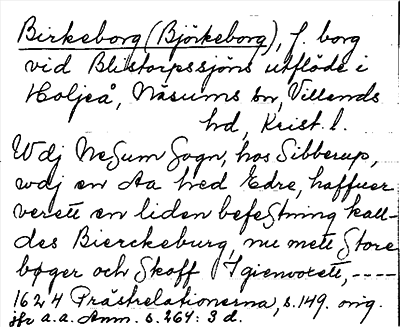 Birkeborg (Björkeborg), f. borg
vid Blistorpssjöns utflöde i
Holjeå, Näsums sn, Villands
hd, Krist. l.
Wdj NeSum Sogn, hos Sibberup,
wdj en Aa hed Edre, haffuer
verett en liden befeStning kall-
des Bierckeburg, nu mett Store
bøger och Skoff Igienvoxett, ----
1624 Prästrelationerna, s. 149. orig.
jfr a.a. Anm. s. 264: 3 d.